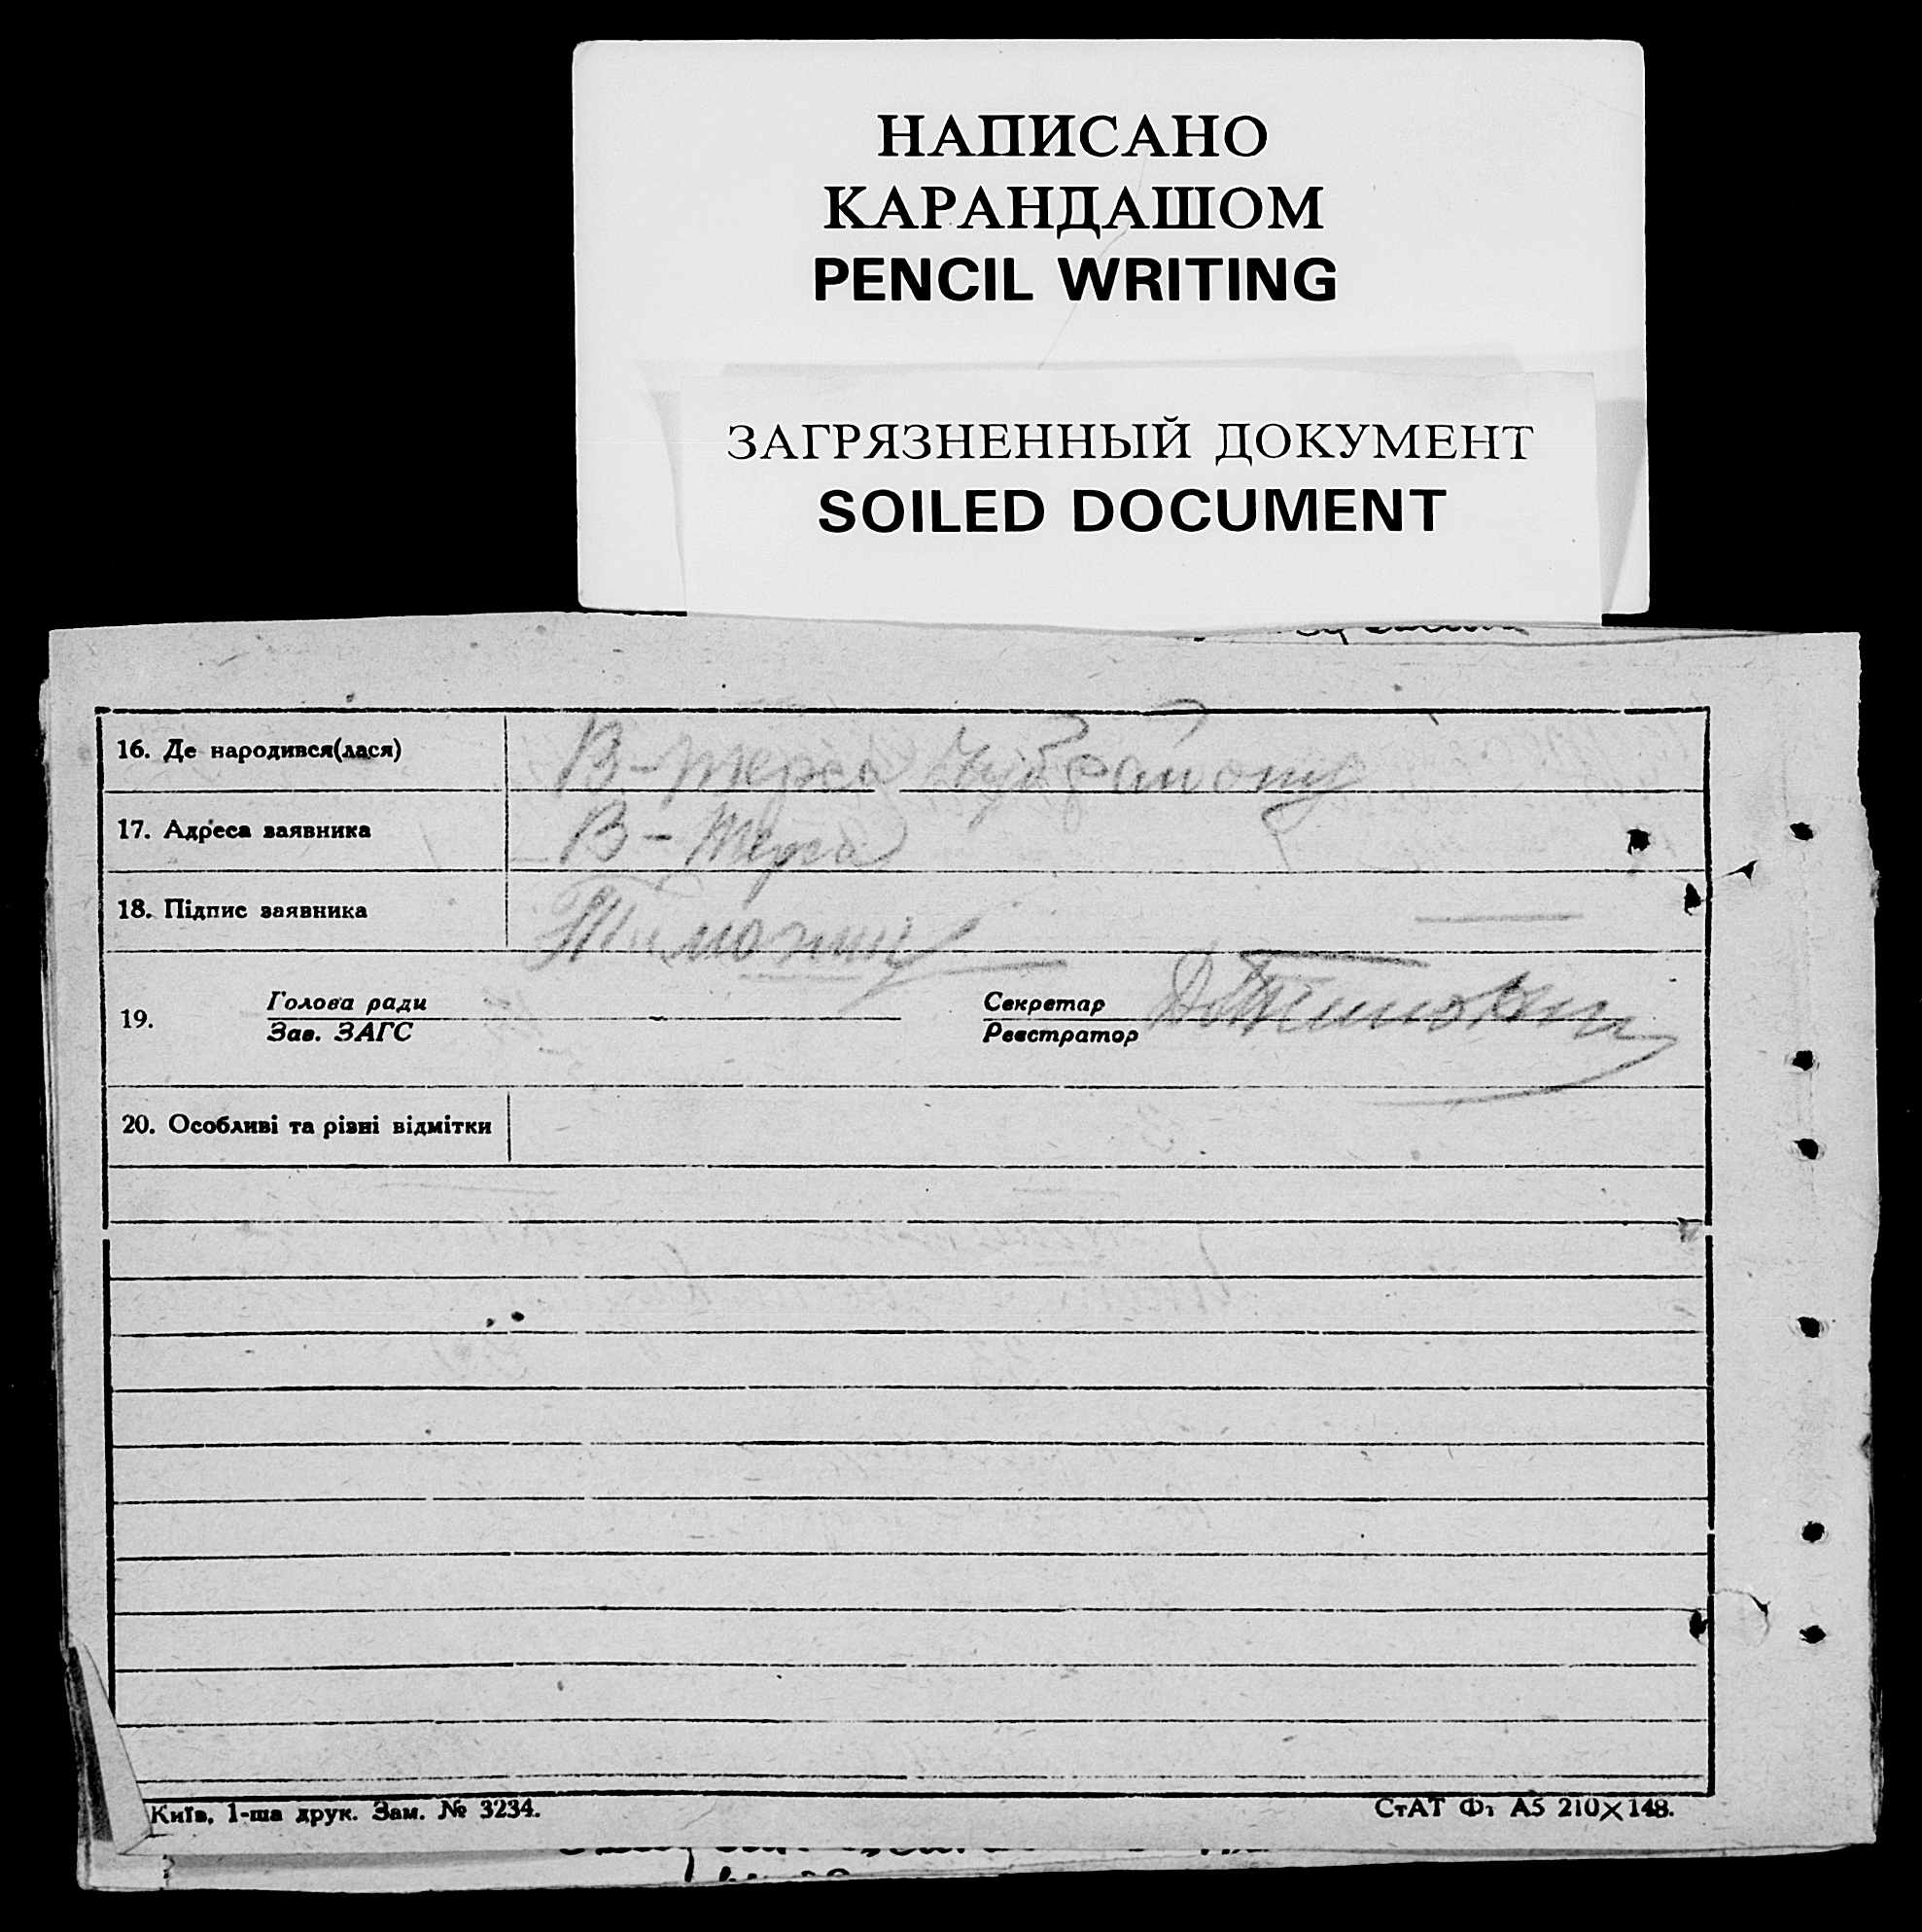 НАПИСАНО
КАРАНДАШОМ
PENCIL WRITING
ЗАГРЯЗНЕННЫЙ ДОКУМЕНТ
SOILED DOCUMENT
16. Де народився(лася)
17. Адреса заявника
В-
18. Підпис заявника
19. Голова ради
Зав. ЗАГС
Секретар
Реєстратор
20. Особливі та різні відмітки
Київ, 1-ша друк. Зам. № 3234.
СтАТ Ф₁ А5 210×148.